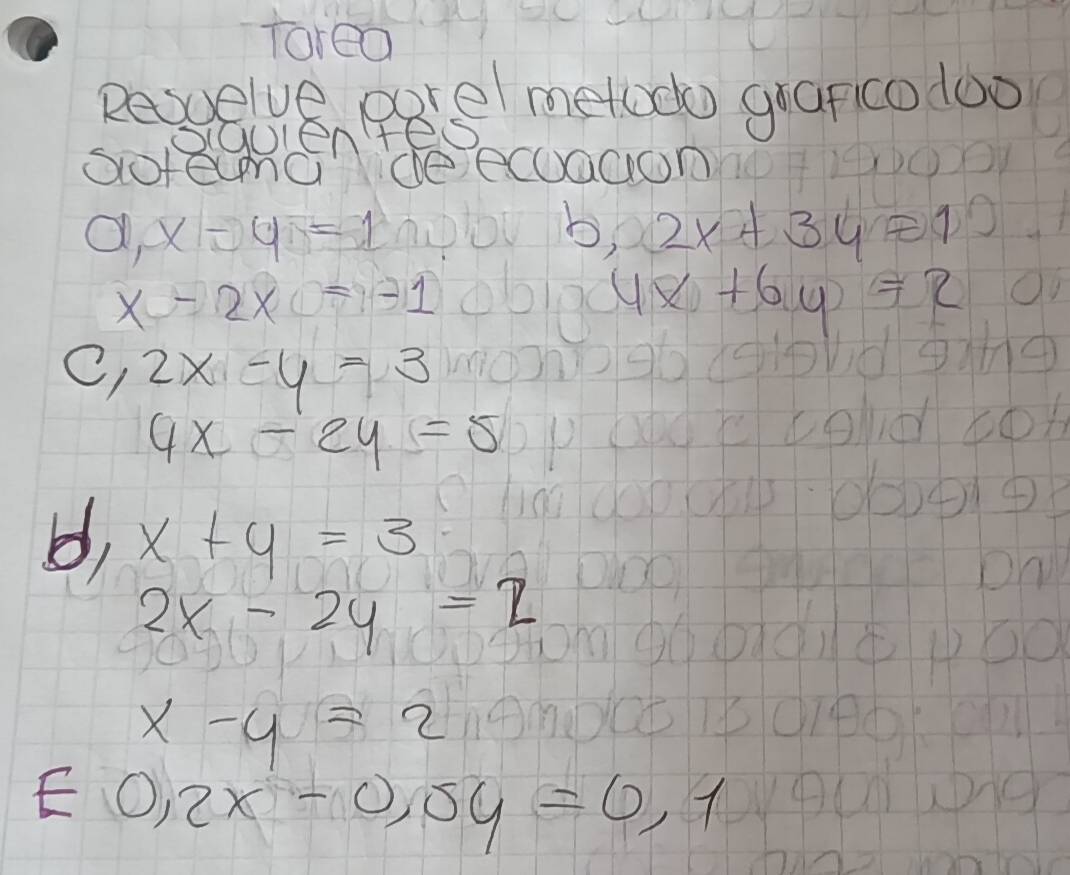 Tarea
Resuelve por el metodo grafico los
siguientes
sistema de ecuacion
a, x - y = 1 b, 2x + 3y = 1
x - 2x = -1 4x + 6y = 2
C, 2x - y = 3
4x - 2y = 5
d, x + y = 3
2x - 2y = 2
x - y = 2
E 0,2x - 0,5y = 0,1